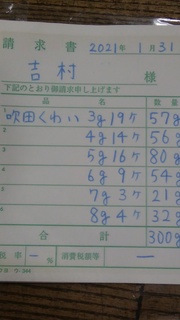 請求書 2021年1月31
吉村 様
下記のとおり御請求申し上げます
品 名 数量
1 吹田くわい 3g 19ケ 57g
2 4g 14ケ 56g
3 5g 16ケ 80g
4 6g 9ケ 54g
5 7g 3ケ 21g
6 8g 4ケ 32g
合 計 300g
税率 — % 消費税額等 —